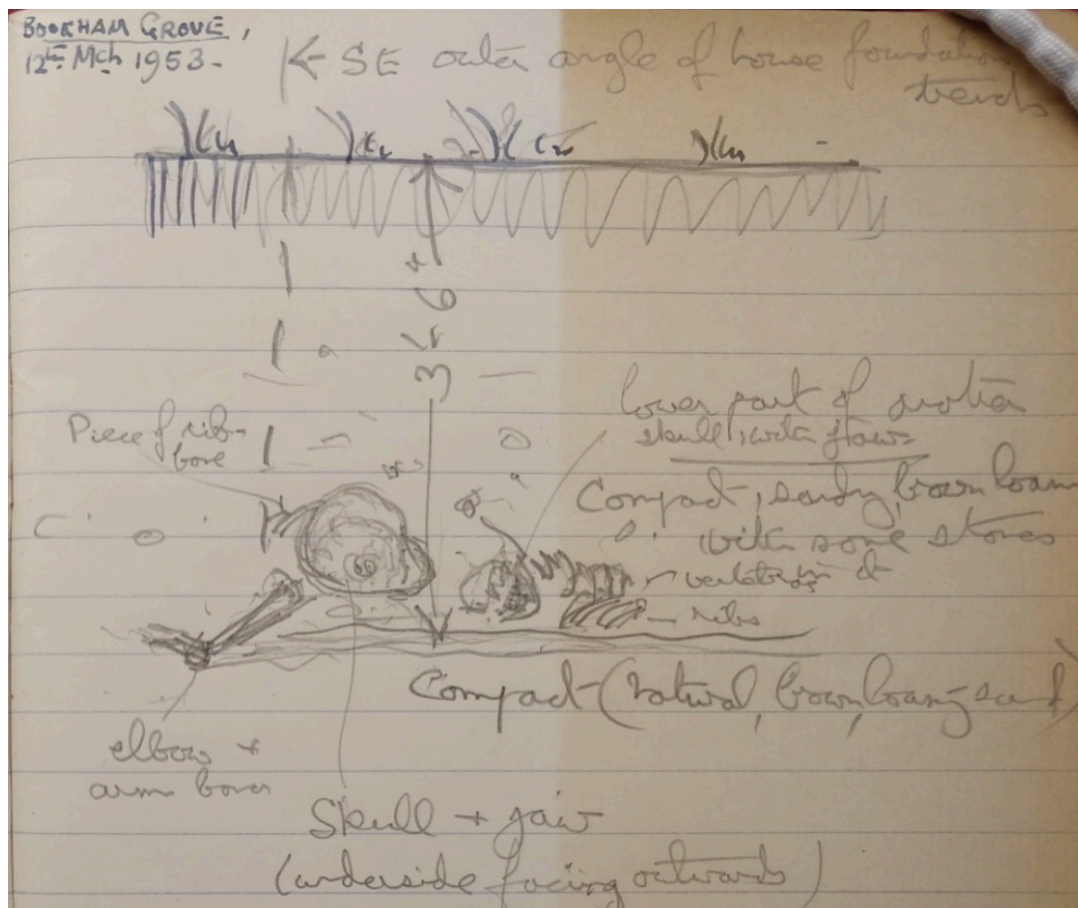 BOOKHAM GROVE,
12th Mch 1953-
← SE outer angle of house foundation
trench
3 ft 6 ins
Piece of rib-
bone
lower part of another
skull, with jaw-
Compact, sandy, brown loam
with some stones
vertebrae &
ribs
Compact (natural, brown, loamy sand)
elbow +
arm bones
Skull + jaw
(underside facing outwards)